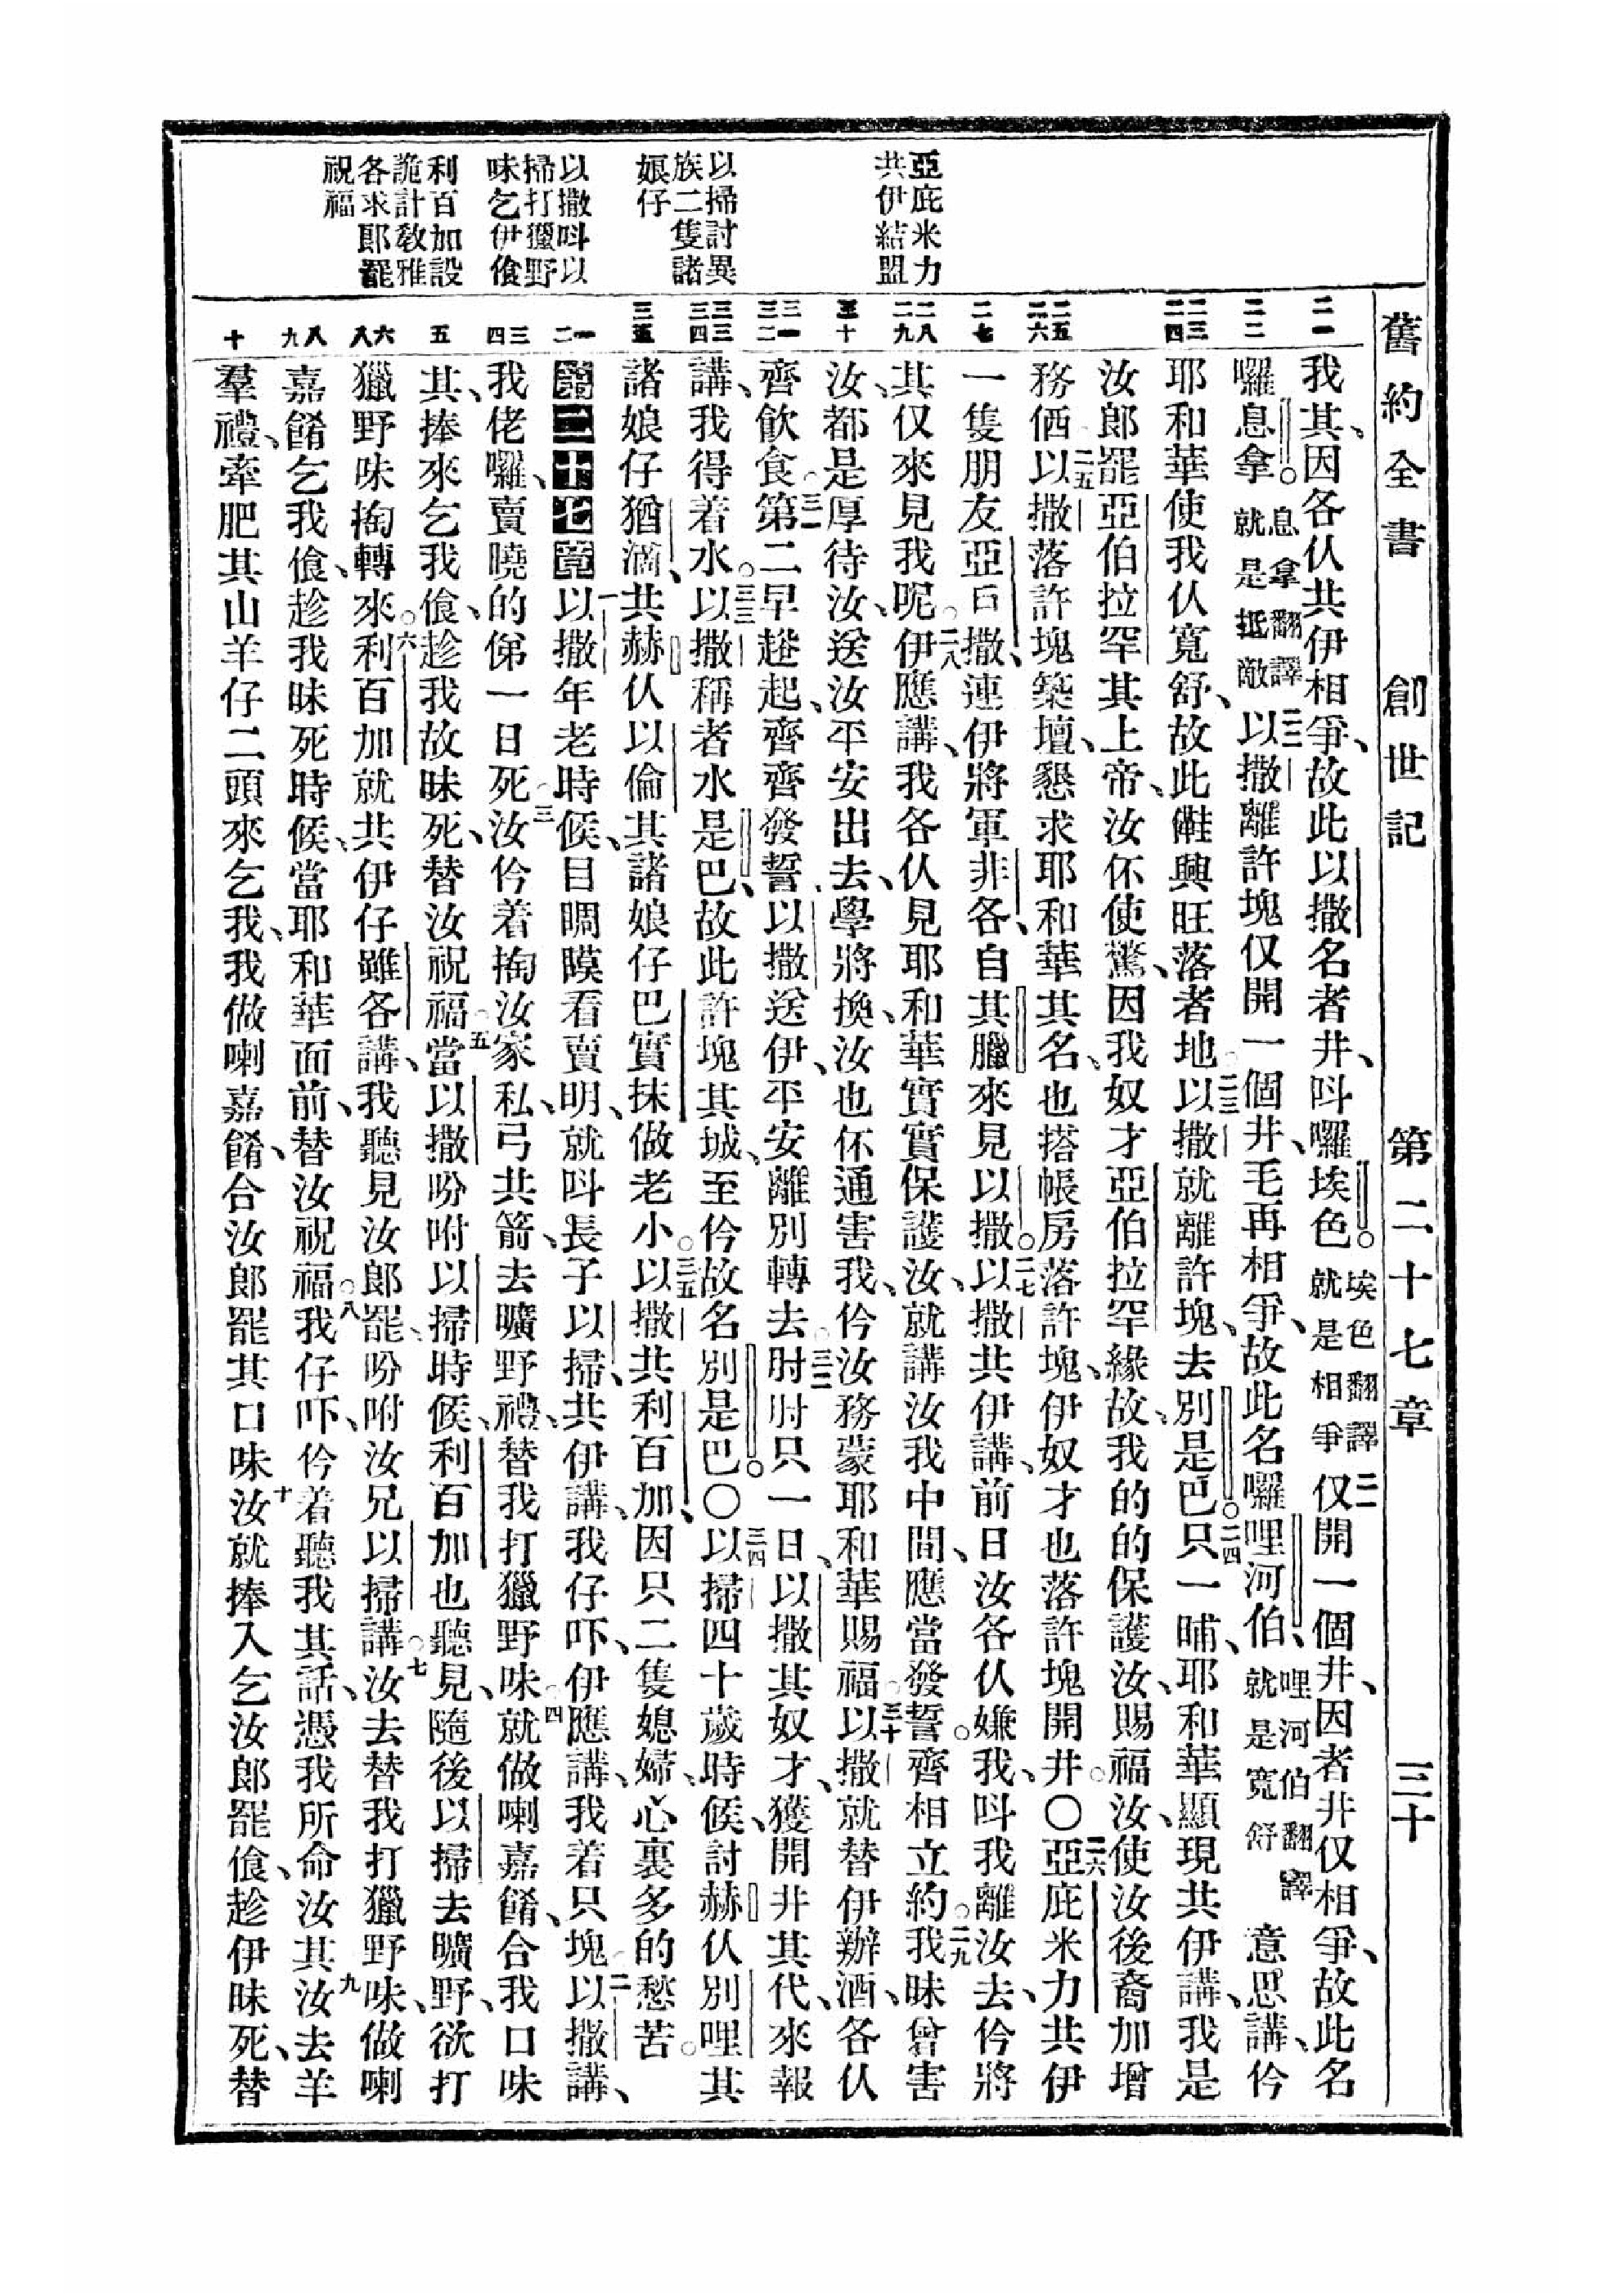 舊約全書　創世記　第二十七章　三十
亞庇米力
共伊結盟
以掃討異
族二隻諸
娘仔
以撒呌以
掃打獵野
味乞伊飧
利百加設
詭計教雅
各求郎罷
祝福
二一
二二
二三
二四
二五
二六
二七
二八
二九
三十
三一
三二
三三
三四
三五
一
二
三
四
五
六
八
八
九
十
我其、因各仈共伊相爭、故此以撒名者井、呌囉埃色。埃色翻譯就是相爭二一仅開一個井、因者井仅相爭、故此名
囉息拿。息拿翻譯就是抵敵二二以撒離許塊仅開一個井、毛再相爭、故此名囉哩河伯、哩河伯翻譯就是寬舒意思講、仱
耶和華使我仈寬舒、故此𪚥興旺落者地。二三以撒就離許塊、去別是巴。二四只一晡、耶和華顯現共伊講、我是
汝郎罷亞伯拉罕其上帝、汝伓使驚、因我奴才亞伯拉罕緣故、我的的保護汝、賜福汝、使汝後裔加增
務俖。二五以撒落許塊築壇、懇求耶和華其名、也搭帳房落許塊、伊奴才也落許塊開井。〇二六亞庇米力共伊
一隻朋友亞戶撒、連伊將軍非各、自其臘來見以撒。二七以撒共伊講、前日汝各仈嫌我、呌我離汝去、仱將
其仅來見我呢。二八伊應講、我各仈見耶和華實實保護汝、就講汝我中間、應當發誓。齊相立約。二九我昧曾害
汝、都是厚待汝、送汝平安出去、學將換、汝也伓通害我、仱汝務蒙耶和華賜福。三十以撒就替伊辦酒、各仈
齊飲食。三一第二早趖起、齊齊發誓、以撒送伊、平安離別轉去。三二肘肘只一日、以撒其奴才、獲開井其代、來報
講、我得着水。三三以撒稱者水是巴、故此許塊其城、至仱故名別是巴。〇三四以掃四十歲時候、討赫仈別哩其
諸娘仔猶滴、共赫仈以倫其諸娘仔巴實抹做老小。三五以撒共利百加、因只二隻媳婦、心裏多的愁苦。
第二十七章一以撒年老時候、目睭瞙看賣明、就呌長子以掃、共伊講、我仔吓、伊應講、我着只塊。二以撒講、
我佬囉、賣曉的俤一日死。三汝仱着掏汝家私、弓共箭、去曠野禮、替我打獵野味。四就做喇嘉餚、合我口味
其、捧來乞我飧、趁我故昧死、替汝祝福。五當以撒吩咐以掃時候、利百加也聽見、隨後以掃去曠野、欲打
獵野味掏轉來。六利百加就共伊仔雖各講、我聽見汝郎罷、吩咐汝兄以掃講。七汝去替我打獵野味、做喇
嘉餚乞我飧、趁我昧死時候、當耶和華面前、替汝祝福。八我仔吓、仱着聽我其話、憑我所命汝其。九汝去羊
羣禮、牽肥其山羊仔二頭來乞我、我做喇嘉餚、合汝郎罷其口味。十汝就捧入乞汝郎罷飧、趁伊昧死、替